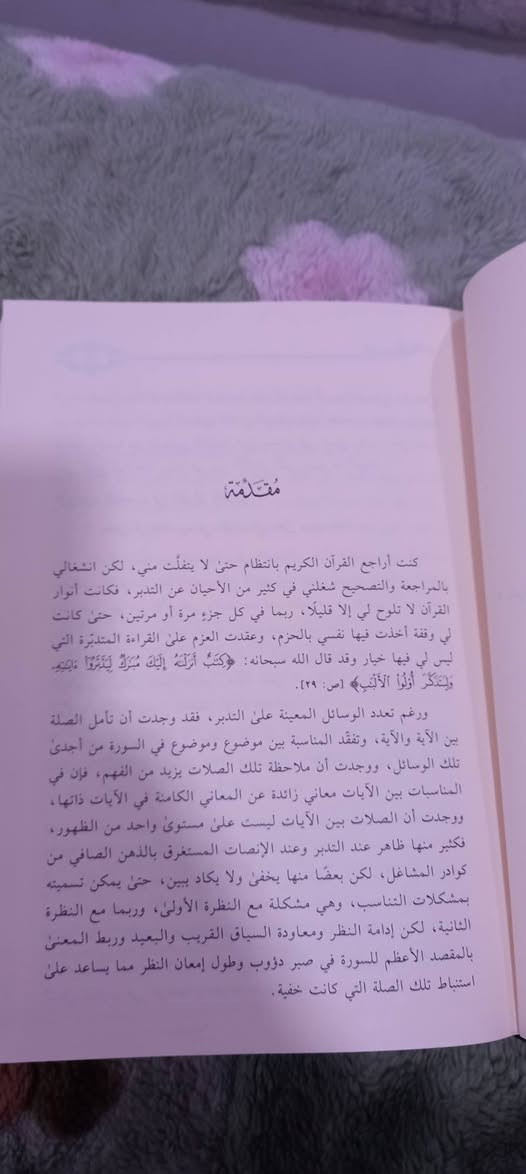 مُقَدِّمَة
كنت أراجع القرآن الكريم بانتظام حتىٰ لا يتفلَّت مني، لكن انشغالي
بالمراجعة والتصحيح شغلني في كثير من الأحيان عن التدبر، فكانت أنوار
القرآن لا تلوح لي إلا قليلًا، ربما في كل جزءٍ مرة أو مرتين، حتىٰ كانت
لي وقفة أخذت فيها نفسي بالحزم، وعقدت العزم علىٰ القراءة المتدبّرة التي
ليس لي فيها خيار وقد قال الله سبحانه: ﴿كِتَٰبٌ أَنزَلۡنَٰهُ إِلَيۡكَ مُبَٰرَكٞ لِّيَدَّبَّرُوٓاْ ءَايَٰتِهِۦ
وَلِيَتَذَكَّرَ أُوْلُواْ ٱلۡأَلۡبَٰبِ﴾ [ص: ٢٩].
ورغم تعدد الوسائل المعينة علىٰ التدبر، فقد وجدت أن تأمل الصلة
بين الآية والآية، وتفقّد المناسبة بين موضوع وموضوع في السورة من أجدىٰ
تلك الوسائل، ووجدت أن ملاحظة تلك الصلات يزيد من الفهم، فإن في
المناسبات بين الآيات معاني زائدة عن المعاني الكامنة في الآيات ذاتها،
ووجدت أن الصلات بين الآيات ليست علىٰ مستوىٰ واحد من الظهور،
فكثير منها ظاهر عند التدبر وعند الإنصات المستغرق بالذهن الصافي من
كوادر المشاغل، لكن بعضًا منها يخفىٰ ولا يكاد يبين، حتىٰ يمكن تسميته
بمشكلات التناسب، وهي مشكلة مع النظرة الأولىٰ، وربما مع النظرة
الثانية، لكن إدامة النظر ومعاودة السياق القريب والبعيد وربط المعنىٰ
بالمقصد الأعظم للسورة في صبر دؤوب وطول إمعان النظر مما يساعد علىٰ
استنباط تلك الصلة التي كانت خفية.